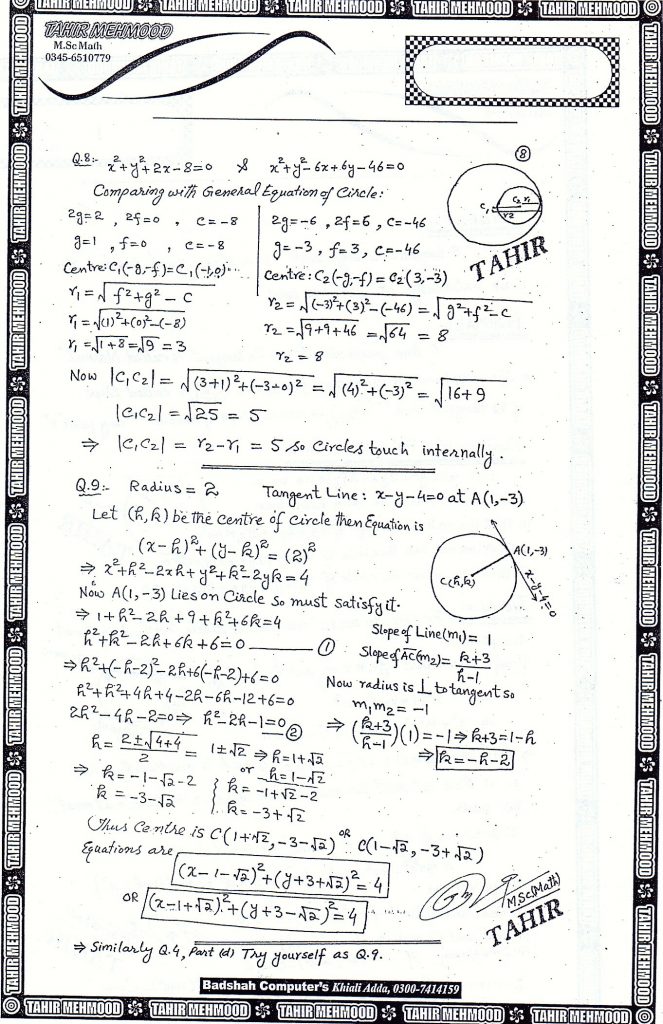 TAHIR MEHMOOD TAHIR MEHMOOD TAHIR MEHMOOD TAHIR MEHMOOD TAHIR MEHMOOD
TAHIR MEHMOOD
M.Sc Math
0345-6510779
Q.8:- x²+y²+2x-8=0 & x²+y²-6x+6y-46=0
(8)
Comparing with General Equation of Circle:
2g=2, 2f=0, c=-8
g=1, f=0, c=-8
Centre: C₁(-g,-f)=C₁(-1,0)
r₁=√(f²+g²-c)
r₁=√((1)²+(0)²-(-8))
r₁=√(1+8)=√9=3
2g=-6, 2f=6, c=-46
g=-3, f=3, c=-46
Centre: C₂(-g,-f)=C₂(3,-3)
r₂=√((-3)²+(3)²-(-46))=√(g²+f²-c)
r₂=√(9+9+46)=√64=8
r₂=8
C₁ C₂ r₁
r₂
TAHIR
Now |C₁C₂|=√((3+1)²+(-3-0)²)=√((4)²+(-3)²)=√(16+9)
|C₁C₂|=√25=5
⇒ |C₁C₂|=r₂-r₁=5 so Circles touch internally.
Q.9:- Radius=2 Tangent Line: x-y-4=0 at A(1,-3)
Let (h,k) be the centre of circle then Equation is
(x-h)²+(y-k)²=(2)²
⇒ x²+h²-2xh+y²+k²-2yk=4
Now A(1,-3) Lies on Circle so must satisfy it.
⇒ 1+h²-2h+9+k²+6k=4
h²+k²-2h+6k+6=0 ——— (1)
⇒ h²+(-h-2)²-2h+6(-h-2)+6=0
h²+h²+4h+4-2h-6h-12+6=0
2h²-4h-2=0 ⇒ h²-2h-1=0 (2)
h=(2±√(4+4))/2=1±√2 ⇒ h=1+√2
or h=1-√2
⇒ k=-1-√2-2
k=-3-√2
k=-1+√2-2
k=-3+√2
A(1,-3)
C(h,k)
x-y-4=0
Slope of Line(m₁)=1
Slope of AC(m₂)=(k+3)/(h-1)
Now radius is ⊥ to tangent so
m₁m₂=-1
⇒ ((k+3)/(h-1))(1)=-1 ⇒ k+3=1-h
⇒ k=-h-2
Thus Centre is C(1+√2,-3-√2) OR C(1-√2,-3+√2)
Equations are
(x-1-√2)²+(y+3+√2)²=4
OR (x-1+√2)²+(y+3-√2)²=4
M.Sc(Math)
TAHIR
⇒ Similarly Q.4, Part (d) Try yourself as Q.9.
Badshah Computer's Khiali Adda, 0300-7414159
TAHIR MEHMOOD TAHIR MEHMOOD TAHIR MEHMOOD TAHIR MEHMOOD TAHIR MEHMOOD
TAHIR MEHMOOD TAHIR MEHMOOD TAHIR MEHMOOD TAHIR MEHMOOD TAHIR MEHMOOD TAHIR MEHMOOD TAHIR MEHMOOD TAHIR MEHMOOD
TAHIR MEHMOOD TAHIR MEHMOOD TAHIR MEHMOOD TAHIR MEHMOOD TAHIR MEHMOOD TAHIR MEHMOOD TAHIR MEHMOOD TAHIR MEHMOOD